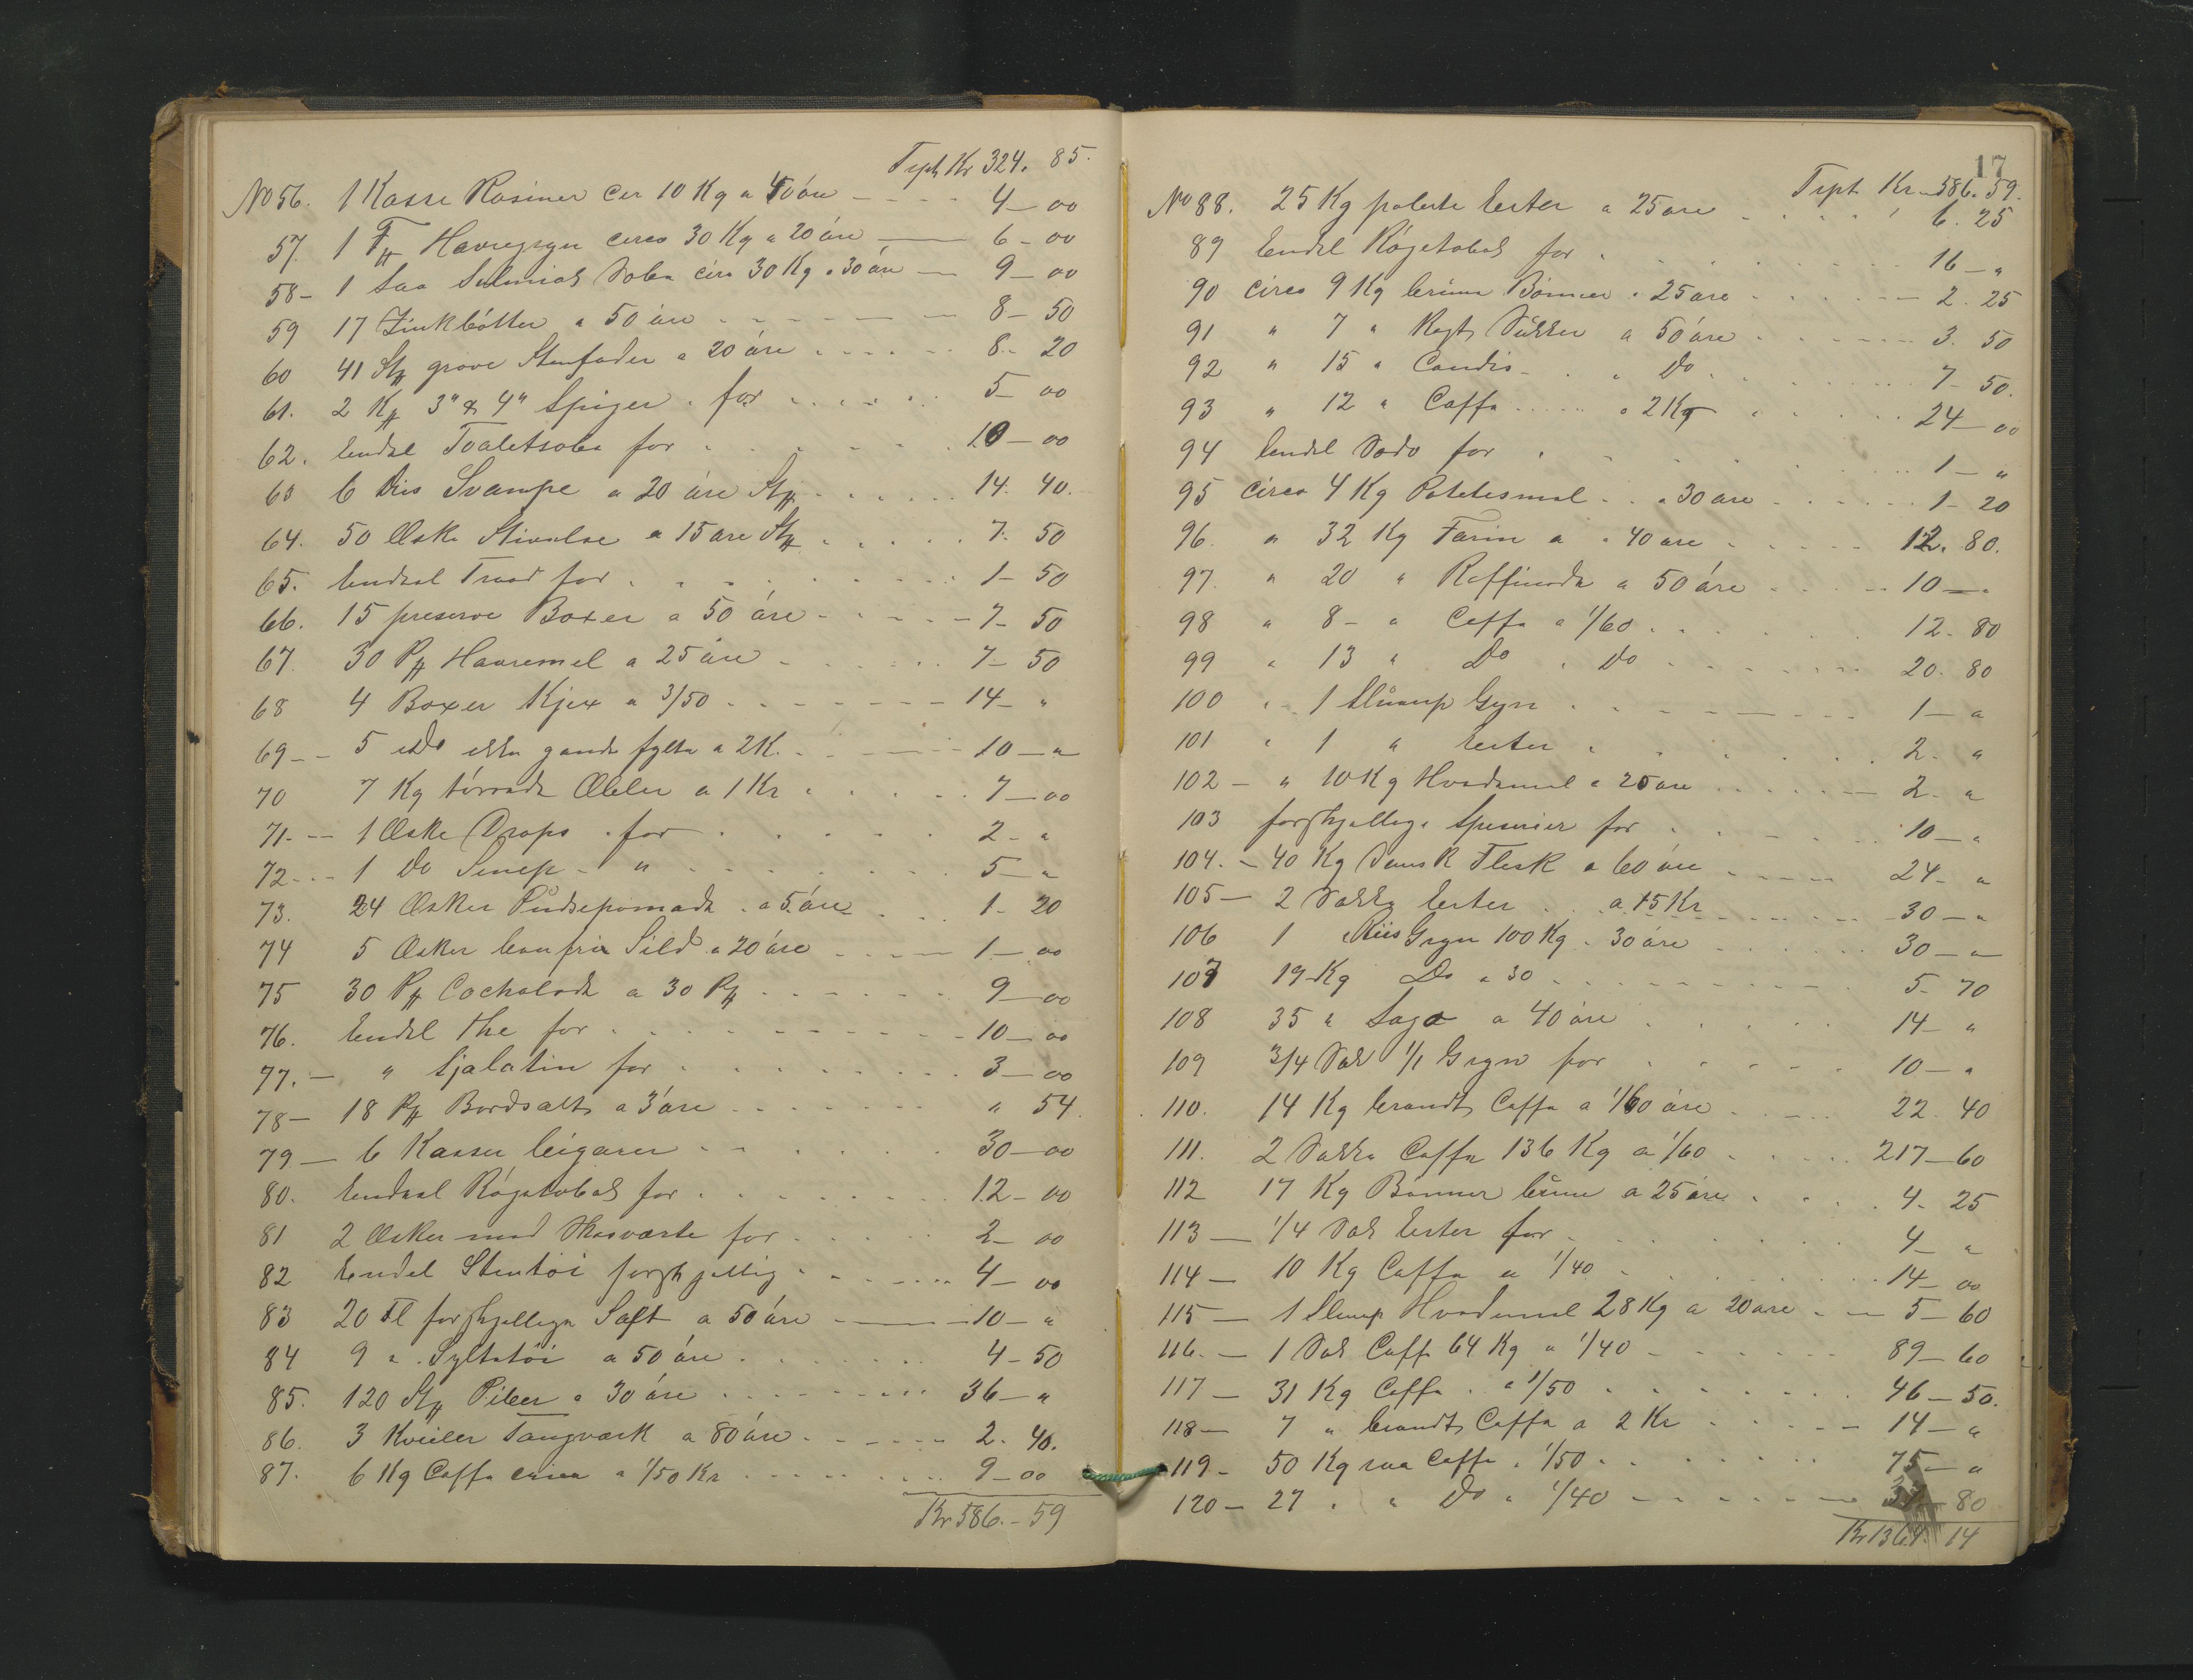 Trpt Kr 324. 85.
No 56. 1 Kasse Rosiner cir 10 Kg a 40 óre 4-00
57. 1 Havregryn circa 30 Kg a 20 óre 6-00
58- 1 Salmiak Sæbe cirs 30 Kg a 30 óre 9-00
59 17 Zinkbótter a 50 óre 8-50
60 41 Stk grove Stenfader a 20 óre 8.. 20
61. 2 Kg 3" & 4" Spiger for 5-00
62. Endel Toaletsæbe for 10-00
63 6 Dus Svampe a 20 óre Stk 14. 40.
64. 50 Æske Stivelse a 15 óre Stk 7. 50
65. Endeel Traad for 1-50
66. 15 preserve Boxer a 50 óre 7-50
67. 30 Pk Havremel a 25 óre 7-50
68 4 Boxer Kjex a 3/50 14- "
69-- 5 Do ikke gands fylte a 2K. 10-"
70 7 Kg tórrede Æbler a 1 Kr 7-00
71.-- 1 Æske Drops for 2-"
72--- 1 Do Senep " 5-"
73. 24 Æsker Pudsepomade a 5 óre 1-20
74 5 Æsker benfrie Sild a 20 óre 1-00
75 30 Pk Cocholade a 30 Pk 9-00
76. Endel the for 10-00
77.- " Sjalatin for 3-00
78- 18 Pk Bordsalt a 3 óre " 54.
79- 6 Kasser Cigarer 30-00
80. Endeel Rógetobak for 12-00
81 2 Æsker med Skosværte for 2-00
82 Endel Stentói forskjellig 4-00
83 20 Fl forskjellige Saft a 50 óre 10-"
84 9 " Syltetói a 50 óre 4-50
85. 120 Stk Piber a 30 óre 36-"
86. 3 Kveiler Tangværk a 80 óre 2. 40.
87. 6 Kg Caffe a 1/50 Kr 9-00
Kr 586.-59
17
Trpt Kr-586.59.
No 88. 25 Kg polerte Erter a 25 óre 6. 25
89 Endel Rógetobak for 16-"
90 circa 9 Kg brune Bónner a 25 óre 2. 25
91 " 7 " Sukker a 50 óre 3. 50
92 " 15 " Candis " Do 7-50.
93 " 12 " Caffe a 2 Kg 24-00
94 Endel Soda for 1-"
95 circa 4 Kg Potetesmel a 30 óre 1-20
96. " 32 Kg Farin a " 40 óre 12. 80.
97. " 20 " Raffinade a 50 óre 10-"
98 " 8- " Caffe a 1/60 12-80
99 " 13 " Do " Do 20. 80
100 " 1 Slump Gryn 1-"
101 " 1 " Erter 2-"
102- " 10 Kg Hvedemel a 20 óre 2-"
103 forskjellige Speserier for 10-"
104.- 40 Kg Dansk Flesk a 60 óre 24-"
105- 2 Sække Erter a 15 Kr 30-"
106 1 Riis Gryn 100 Kg a 30 óre 30-"
107 19 Kg Do a 30 5-70
108 35 " Sago a 40 óre 14-"
109 3/4 Sæk 1/1 Gryn for 10-"
110. 14 Kg brendt Caffe a 1/60 óre 22. 40
111. 2 Sække Caffe 136 Kg a 1/60 217-60
112 17 Kg Bónner brune a 25 óre 4-25
113- 1/4 Sæk Erter for 4-"
114- 10 Kg Caffe a 1/40 14-00
115- 1 Slump Hvedemel 28 Kg a 20 óre 5-60
116.- 1 Sæk Caffe 64 Kg a 1/40 89-60
117- 31 Kg Caffe a 1/50 46-50.
118- 7 " brendt Caffe a 2 Kr 14-"
119- 50 Kg raa Caffe a 1/50 75-"
120- 27 " " Do a 1/40 37-80
Kr 1364. 14